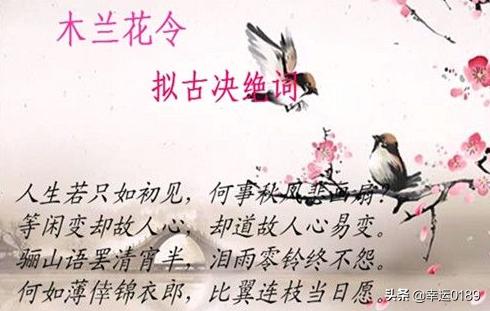 木兰花令
拟古决绝词
人生若只如初见，何事秋风悲画扇？
等闲变却故人心，却道故人心易变。
骊山语罢清宵半，泪雨零铃终不怨。
何如薄倖锦衣郎，比翼连枝当日愿。
头条@幸运0189